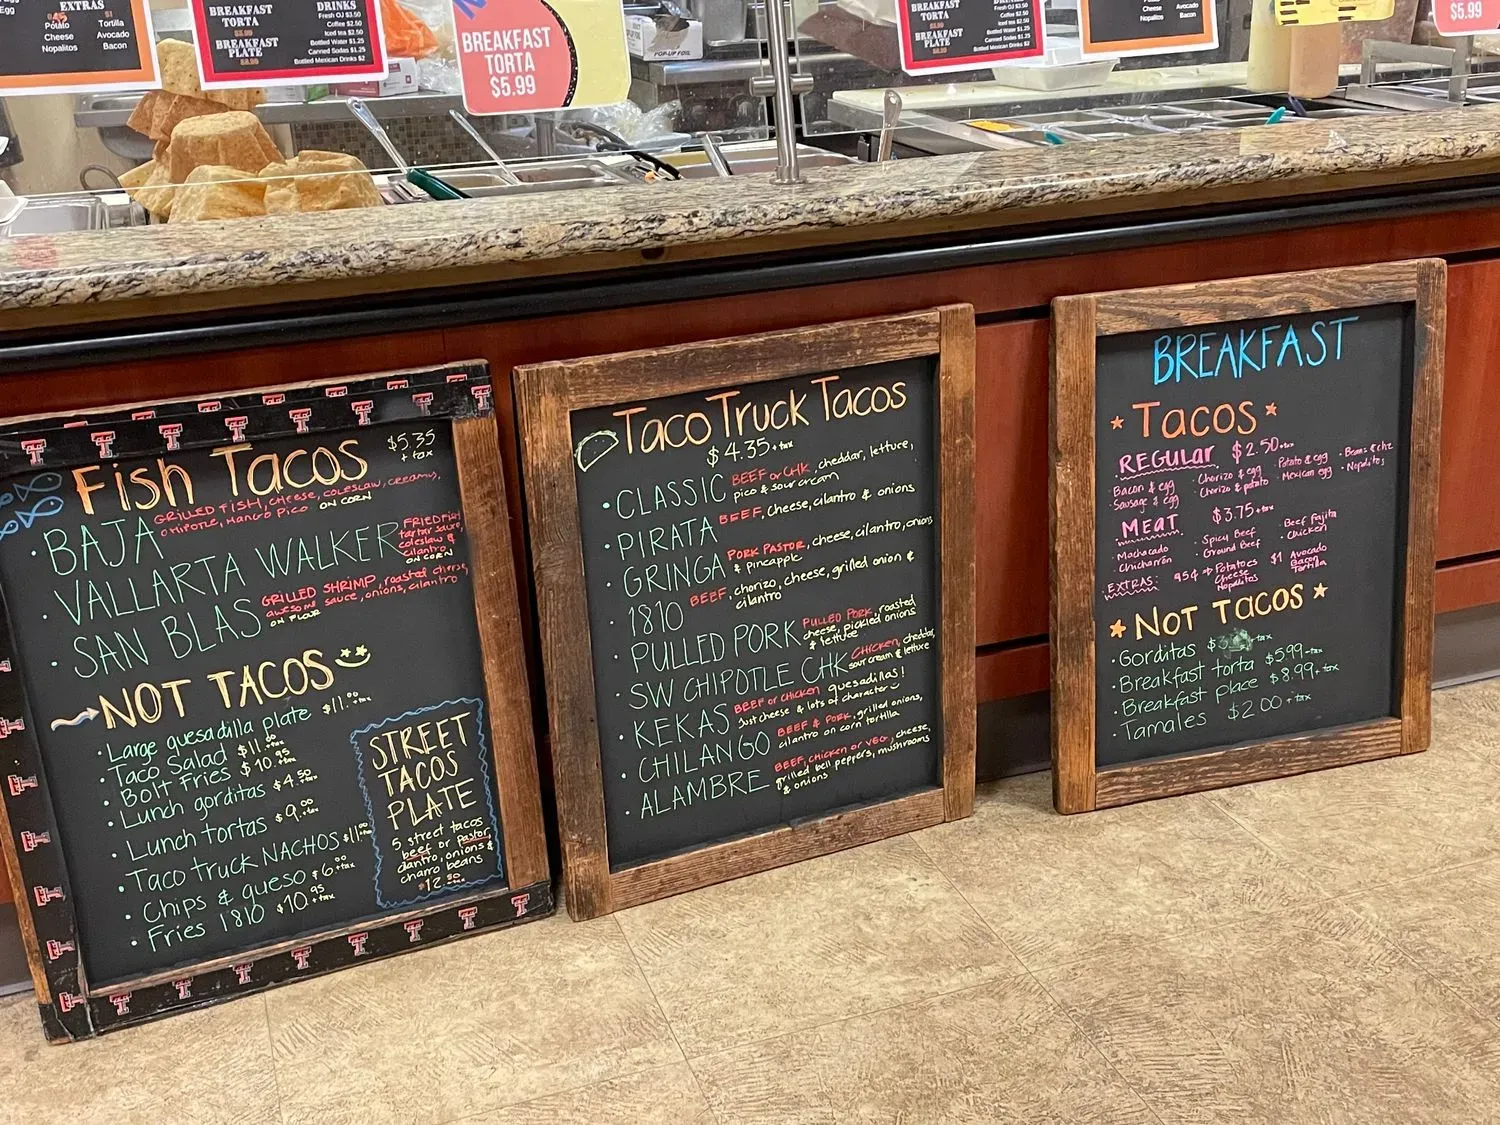 Egg
EXTRAS
Potato
Cheese
Nopalitos
$1
Tortilla
Avocado
Bacon
BREAKFAST
TORTA
$5.99
BREAKFAST
PLATE
$8.99
DRINKS
Fresh OJ $3.50
Coffee $2.50
Iced tea $2.50
Bottled Water $1.25
Canned Sodas $1.25
Bottled Mexican Drinks $2
BREAKFAST
TORTA
$5.99
POP-UP FOIL
BREAKFAST
TORTA
BREAKFAST
PLATE
DRINKS
Fresh OJ $3.50
Coffee $2.50
Iced tea $2.50
Bottled Water $1.25
Canned Sodas $1.25
Bottled Mexican Drinks $2
Cheese
Nopalitos
Avocado
Bacon
$5.99
Fish Tacos
$5.35
+ tax
• BAJA GRILLED FISH, cheese, coleslaw, creamy,
chipotle, Mango Pico ON CORN
• VALLARTA WALKER FRIED Fish
tartar sauce,
coleslaw &
cilantro
ON CORN
• SAN BLAS GRILLED SHRIMP, roasted cheese,
awesome sauce, onions, cilantro
ON FLOUR
NOT TACOS
• Large quesadilla plate $11.00+tax
• Taco Salad $11.00+tax
• Bolt Fries $10.95+tax
• Lunch gorditas $4.50+tax
• Lunch tortas $9.00+tax
• Taco truck NACHOS $11.00+tax
• Chips & queso $6.00+tax
• Fries 1810 $10.95+tax
STREET
TACOS
PLATE
5 street tacos
beef or pastor,
cilantro, onions &
charro beans
$12.50+tax
Taco Truck Tacos
$4.35+tax
• CLASSIC BEEF or CHK, cheddar, lettuce,
pico & sour cream
• PIRATA BEEF, cheese, cilantro & onions
• GRINGA PORK PASTOR, cheese, cilantro, onions
& pineapple
• 1810 BEEF, chorizo, cheese, grilled onion &
cilantro
• PULLED PORK PULLED PORK, roasted
cheese, pickled onions
& lettuce
• SW CHIPOTLE CHK CHICKEN, cheddar,
sour cream & lettuce
• KEKAS BEEF or CHICKEN quesadillas!
Just cheese & lots of character
• CHILANGO BEEF & PORK, grilled onions,
cilantro on corn tortilla
• ALAMBRE BEEF, CHICKEN or VEG, cheese,
grilled bell peppers, mushrooms
& onions
BREAKFAST
* TACOS *
REGULAR $2.50+tax
• Bacon & egg • Chorizo & egg • Potato & egg • Beans & chz
• Sausage & egg • Chorizo & potato • Mexican egg • Nopalitos
MEAT $3.75+tax
• Machacado • Spicy Beef • Beef Fajita
• Chicharrón • Ground Beef • Chicken
EXTRAS: 95¢ → Potatoes
Cheese
Nopalitos
$1 Avocado
Bacon
Tortilla
* NOT TACOS *
• Gorditas $3. +tax
• Breakfast torta $5.99+tax
• Breakfast place $8.99+tax
• Tamales $2.00+tax